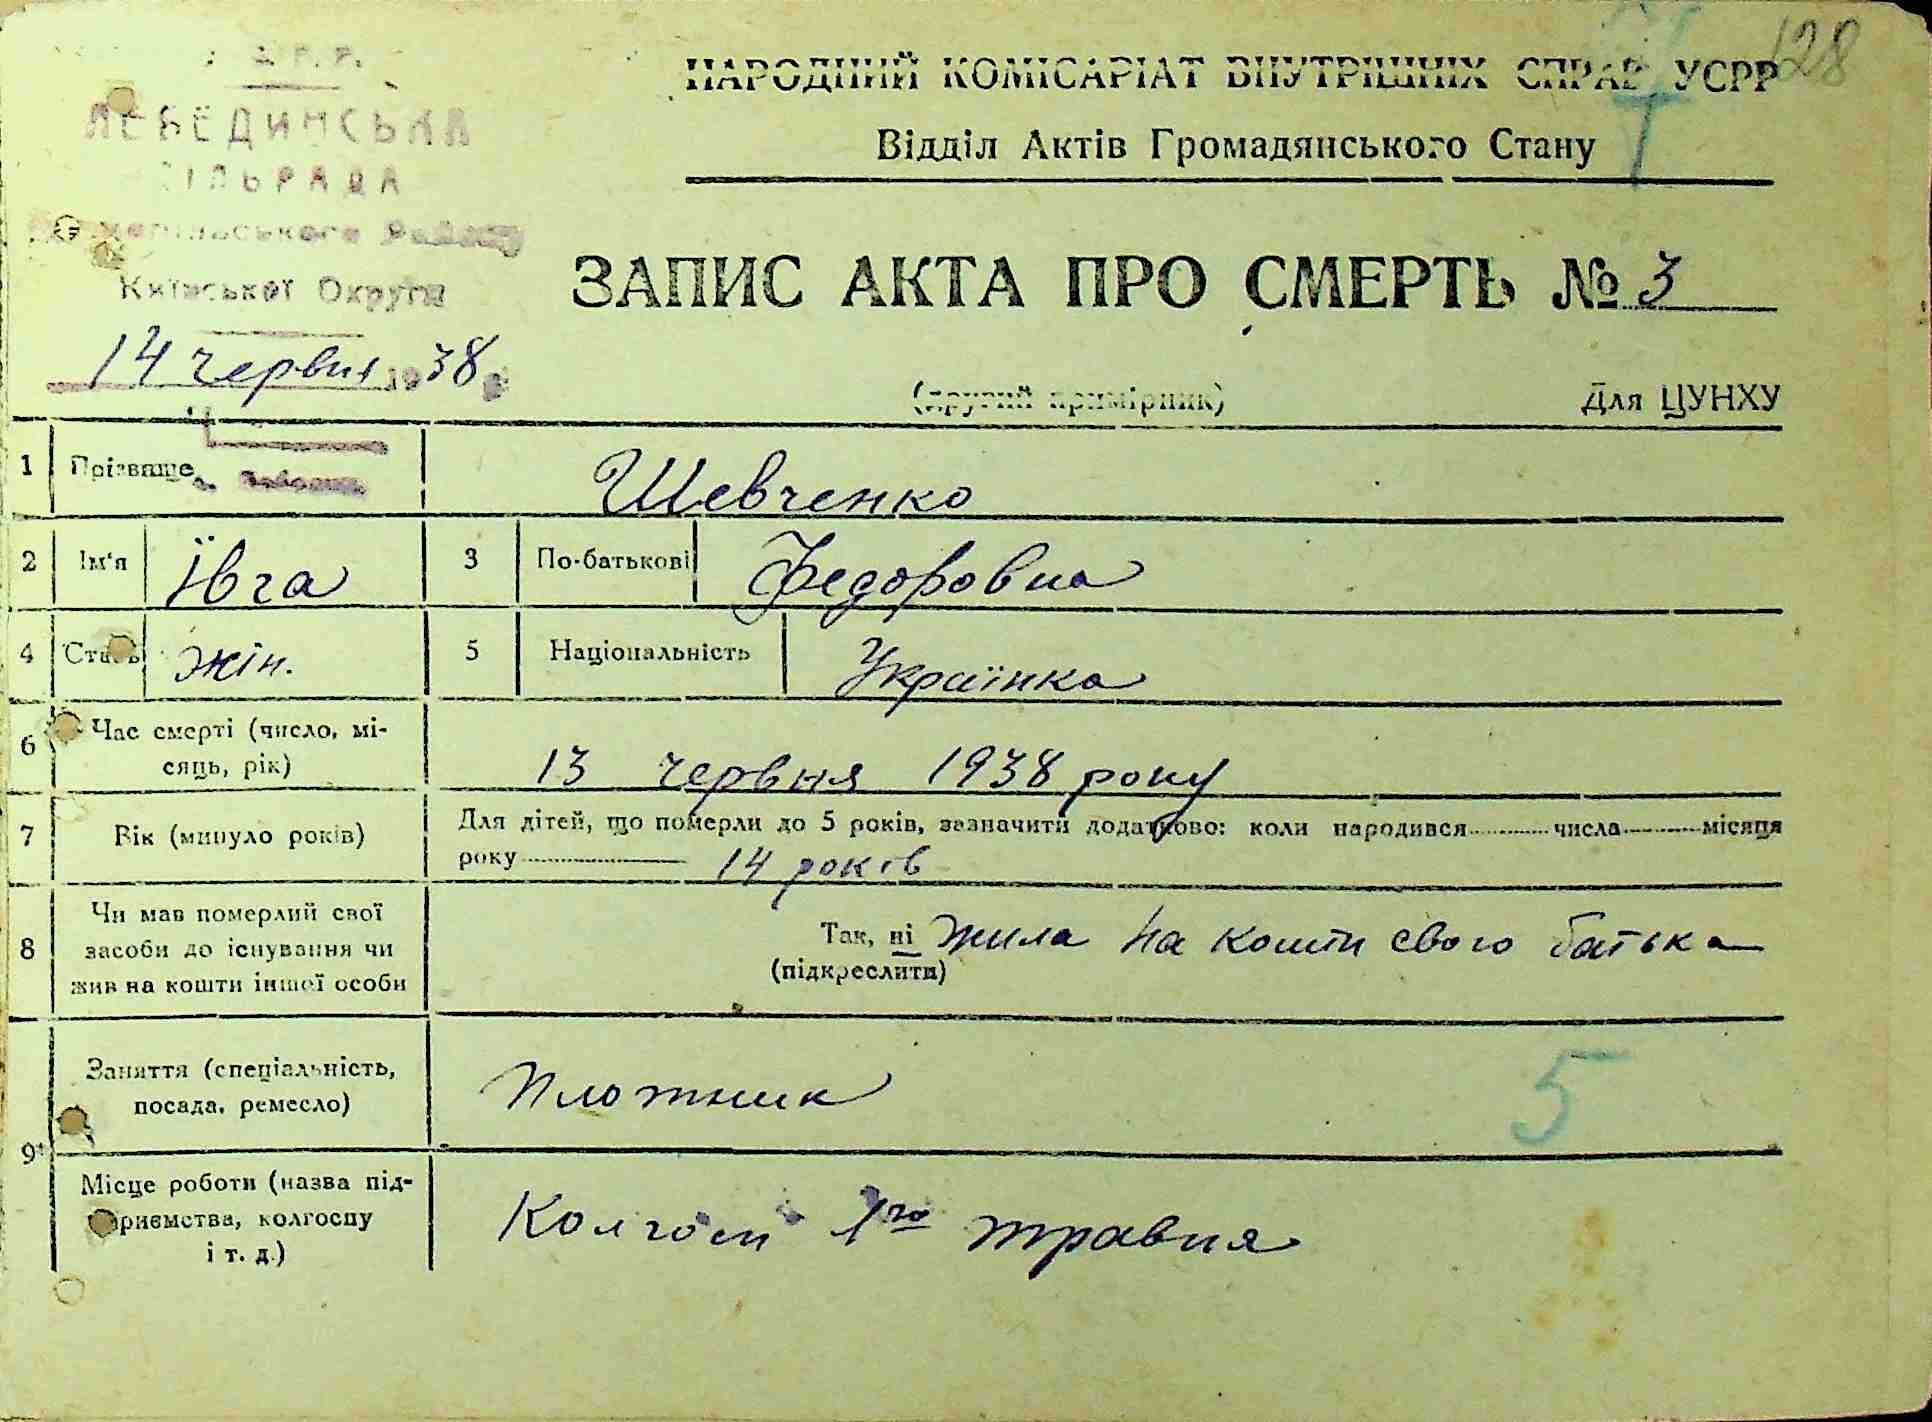 128
НАРОДНИЙ КОМІСАРІАТ ВНУТРІШНІХ СПРАВ УСРР
Відділ Актів Громадянського Стану
ЛЕБЕДИНСЬКА
СІЛЬРАДА
Району
Київської Округи
14 червня 1938
ЗАПИС АКТА ПРО СМЕРТЬ № 3
(другий примірник) Для ЦУНХУ
1 Прізвище Шевченко
2 Ім'я Івга 3 По-батькові Федоровна
4 Стать жін. 5 Національність Українка
6 Час смерті (число, мі-
сяць, рік) 13 червня 1938 року
7 Вік (минуло років) Для дітей, що померли до 5 років, зазначити додатково: коли народився числа місяця
року 14 років
8 Чи мав померлий свої
засоби до існування чи
жив на кошти іншої особи
Так, ні жила на кошти свого батька
(підкреслити)
9 Заняття (спеціальність,
посада, ремесло) Плотник
5
Місце роботи (назва під-
приємства, колгоспу
і т. д.) Колгосп 1го травня